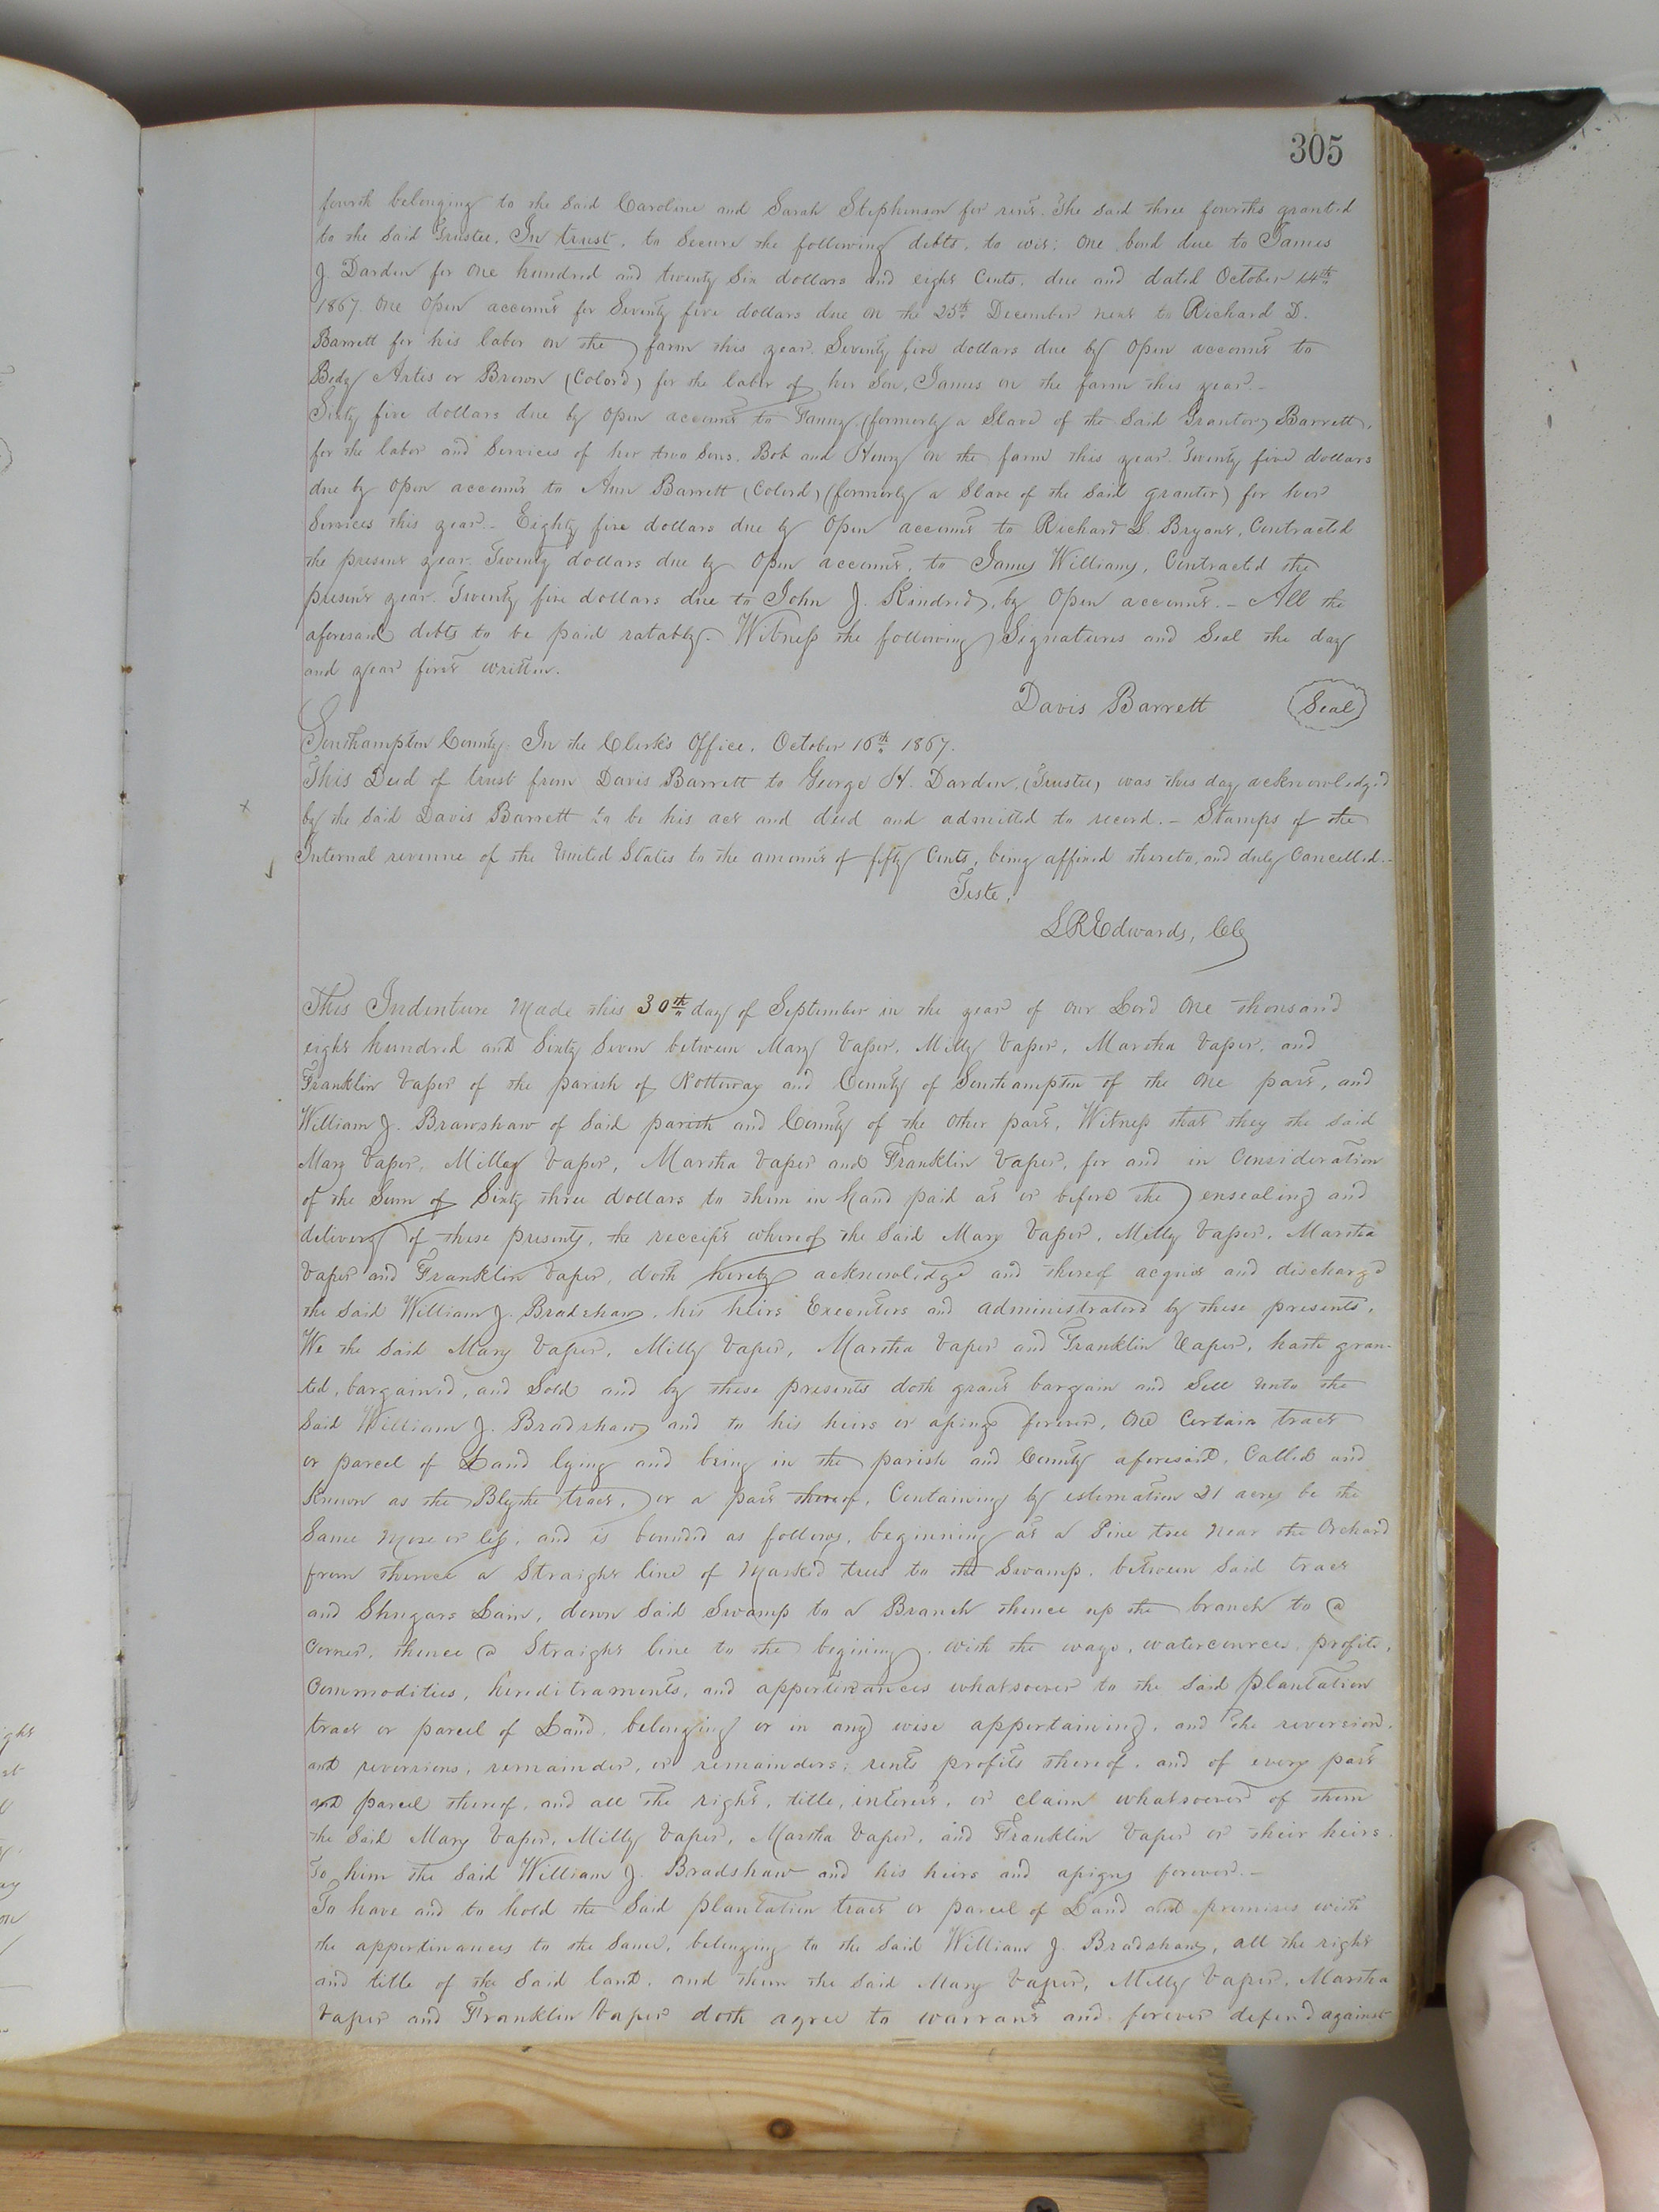 305
fourth belonging to the said Caroline and Sarah Stephenson for rent. The said three fourths granted
to the said Trustee, In trust, to secure the following debts, to wit: One bond due to James
J. Darden for One hundred and twenty six dollars and eight Cents, due and dated October 14th
1867. One Open account for Seventy five dollars due on the 25th December next to Richard D.
Barrett for his labor on the farm this year. Seventy five dollars due by Open account to
Artis or Brown (Colord) for the labor of her Son, James on the farm this year.-
Sixty five dollars due by open account to Fanny (formerly a Slave of the Said Grantor) Barrett,
for the labor and Services of her two Sons, Bob and Henry on the farm this year. Twenty five dollars
due by Open account to Ann Barrett (Colord) (formerly a Slave of the Said grantor) for her
Services this year.- Eighty five dollars due by Open account to Richard L. Bryant, Contracted
the present year. Twenty dollars due by Open account, to James Williams, Contracted the
present year. Twenty five dollars due to John J. Kindred, by Open account.- All the
aforesaid debts to be paid ratably. Witness the following Signatures and Seal the day
and year first written.
Davis Barrett (Seal)
Southampton County: In the Clerk's Office, October 16th 1867.
This Deed of trust from Davis Barrett to George H. Darden, (Trustee) was this day acknowledged
x by the Said Davis Barrett to be his act and deed and admitted to record.- Stamps of the
Internal revenue of the United States to the amount of fifty Cents, being affixed thereto, and duly Cancelled.-
Teste,
L R Edwards, CC
This Indenture Made this 30th day of September in the year of Our Lord One thousand
eight hundred and Sixty Seven between Mary Vaper, Milly Vaper, Martha Vaper, and
Franklin Vaper of the parish of Nottoway and County of Southampton of the One part, and
William J. Brawshaw of Said parish and County of the Other part, Witness that they the said
Mary Vaper, Milley Vaper, Martha Vaper and Franklin Vaper, for and in Consideration
of the Sum of Sixty three dollars to them in hand paid at or before the ensealing and
delivery of these presents, the receipt whereof the Said Mary Vaper, Milly Vaper, Martha
Vaper and Franklin Vaper, doth hereby acknowledge and thereof acquit and discharge
the Said William J. Bradshaw, his heirs Executors and administrators by these presents,
We the Said Mary Vaper, Milly Vaper, Martha Vaper and Franklin Vaper, hath gran-
ted, bargained, and Sold and by these presents doth grant bargain and Sell unto the
Said William J. Bradshaw and to his heirs or asings forever, One Certain tract
or parcel of Land lying and being in the parish and County aforesaid, Called and
Known as the Blythe tract, or a part thereof, Containing by estimation 21 acres be the
Same More or less, and is bounded as follows, beginning at a Pine tree Near the Orchard
from thence a Straight line of Marked trees to the Swamp, between Said tract
and Shugars Lain, down Said Swamp to a Branch thence up the branch to a
Corner, thence a Straight line to the begining. with the ways, watercources, profits,
Commodities, hereditraments, and appertenances whatsoever to the Said plantation
tract or parcel of Land, belonging or in any wise appertaining, and the reversion,
and reversions, remainder, or remainders; rents profits thereof, and of every part
and parcel thereof, and all the right, title, interest, or claim whatsoever of them
the Said Mary Vaper, Milly Vaper, Martha Vaper, and Franklin Vaper or their heirs.
To him the Said William J. Bradshaw and his heirs and asigns forever.-
To have and to hold the Said plantation tract or parcel of Land and premises with
the appertenances to the Same, belonging to the Said William J. Bradshaw, all the right
and title of the Said land, and them the Said Mary Vaper, Milly Vaper, Martha
Vaper and Franklin Vaper doth agree to warrant and forever defend against